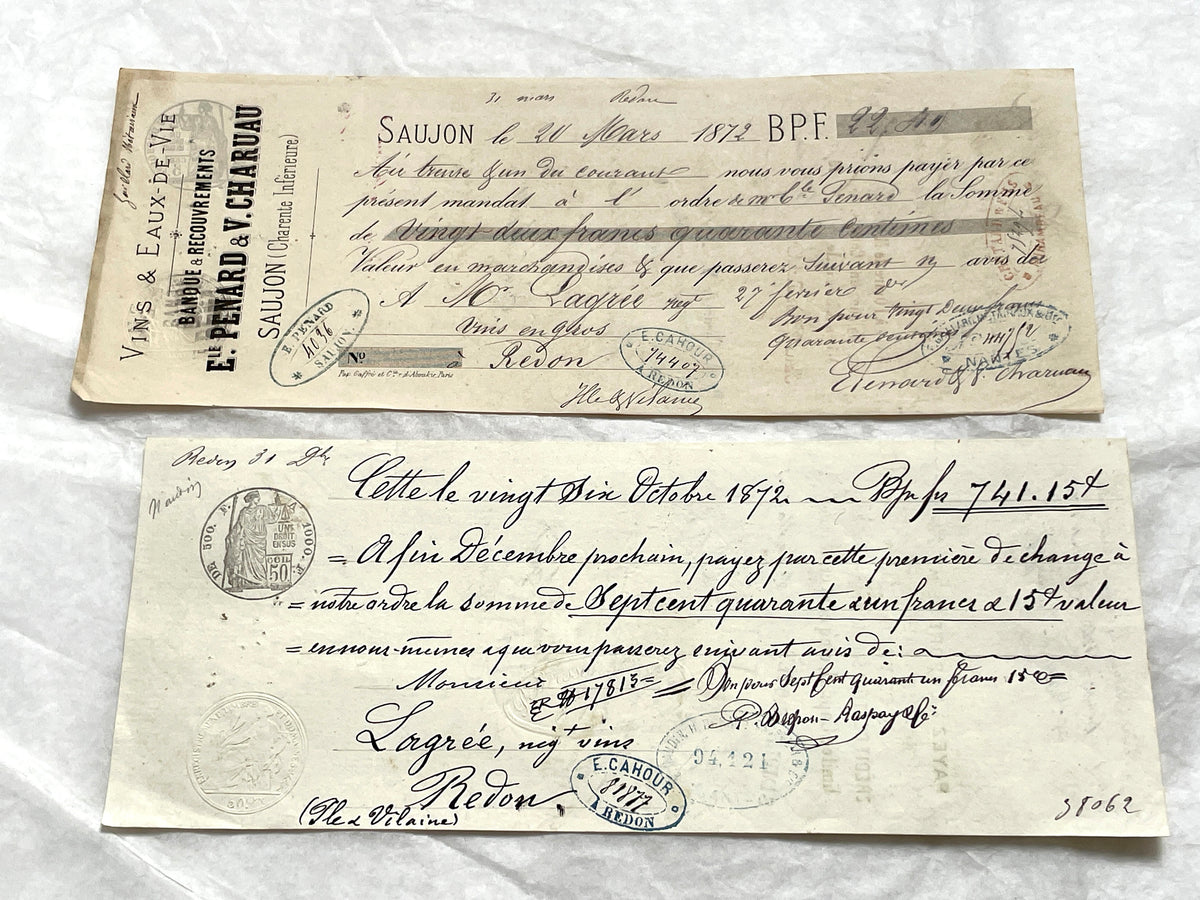 31 mars Redon
VINS & EAUX-DE-VIE
BANQUE & RECOUVREMENTS
Elle E. PENARD & V. CHARUAU
SAUJON (Charente Inférieure)
SAUJON le 20 Mars 1872 B.P.F. 22,40
Au trente & un du courant nous vous prions payer par ce
présent mandat à l' ordre de la Somme
de Vingt deux francs quarante Centimes
Valeur en marchandises & que passerez suivant n/ avis de
A Mr Lagrée negt 27 février
vins en gros
Bon pour vingt Deux francs
quarante
No à Redon
Ille & Vilaine
E. Penard & V. Charuau
E. PENARD
4036
SAUJON.
E. CAHOUR
74407
A REDON
NANTES
Redon 31 Dbre
Cette le vingt Six Octobre 1872 Bpr frs 741.15ct
DE 500. F. A 1000. F.
UNE DROIT EN SUS
50
= A fin Décembre prochain, payez par cette première de change à
= notre ordre la somme de Sept cent quarante & un francs & 15ct valeur
= en nous-mêmes & que vous passerez suivant avis de:
Monsieur
17813 =
Bon pour Sept Cent quarante un francs 15
Lagrée, nég.t vins
Redon
(Ile & Vilaine)
94.121
E. CAHOUR
81877
A REDON
38062